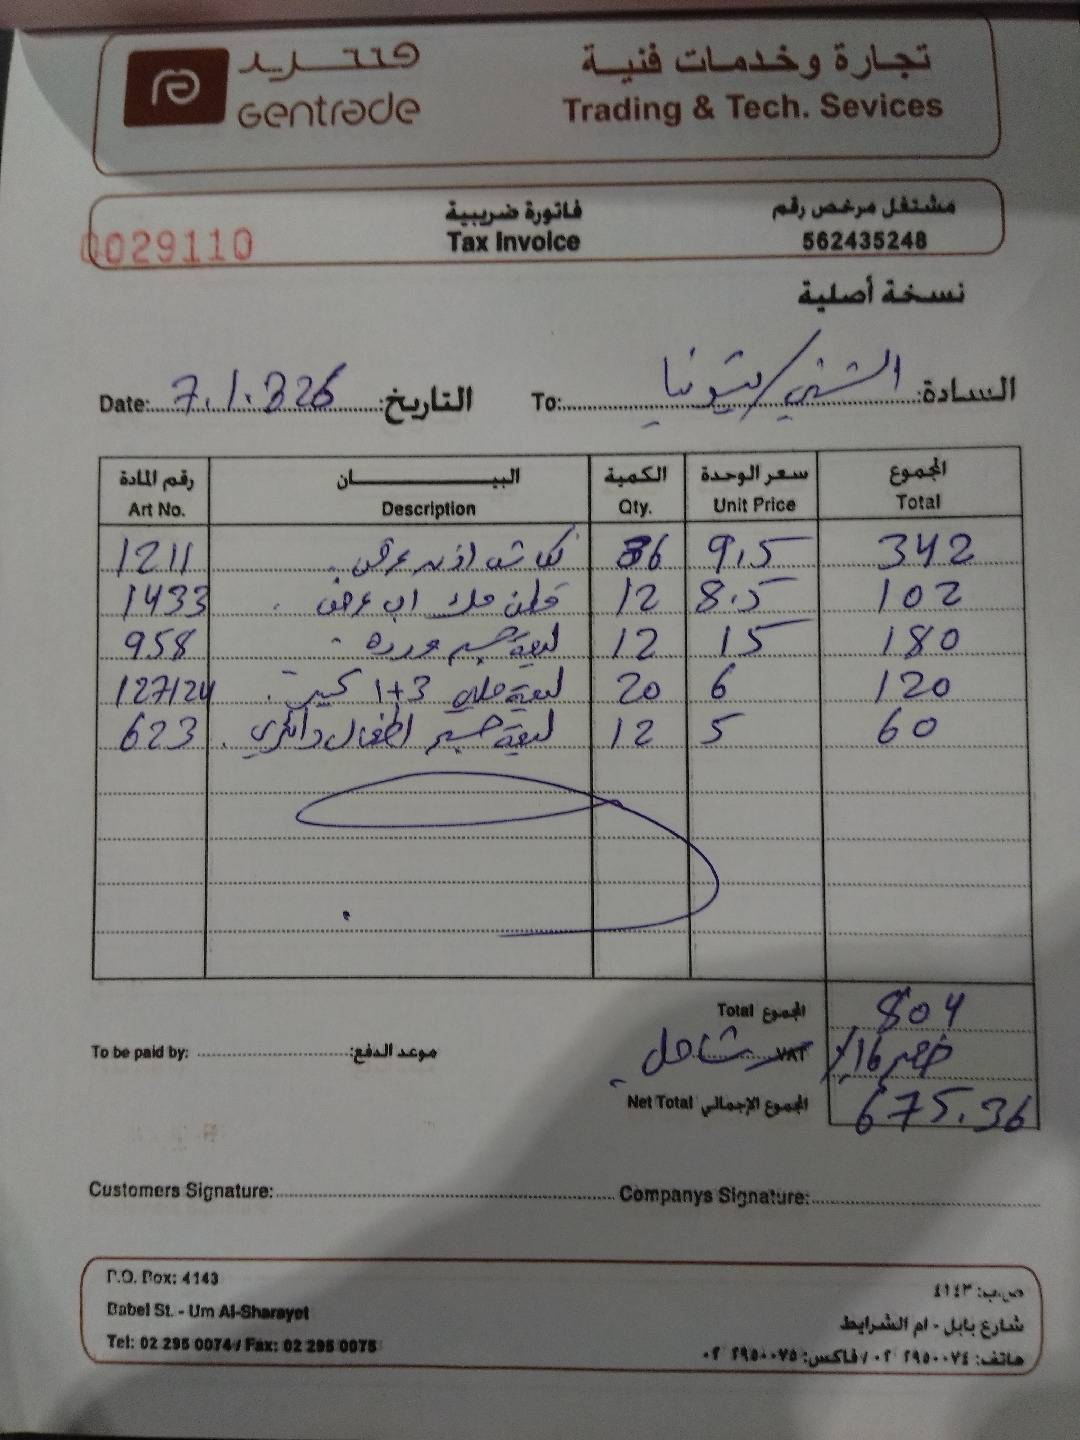 جنتريد
Gentrade
تجارة وخدمات فنية
Trading & Tech. Sevices
0029110
فاتورة ضريبية
Tax Invoice
مشتغل مرخص رقم
562435248
نسخة أصلية
Date: 7.1.326 التاريخ:
To: السادة: الشني/بيتونيا
رقم المادة البيــــــان الكمية سعر الوحدة المجموع
Art No. Description Qty. Unit Price Total
1211 36 9.5 342
1433 12 8.5 102
958 ليفة جسم وردة 12 15 180
127/124 ليفة جلي 3+1 كبير 20 6 120
623 ليفة جسم اطفال دائري 12 5 60
Total المجموع 804
VAT شامل خصم 16%
Net Total المجموع الإجمالي 675.36
To be paid by: موعد الدفع:
Customers Signature: Companys Signature:
P.O. Box: 4143
Babel St. - Um Al-Sharayet
Tel: 02 295 0074 / Fax: 02 295 0075
ص.ب: ٤١٤٣
شارع بابل - ام الشرايط
هاتف: ٠٢ ٢٩٥٠٠٧٤ / فاكس: ٠٢ ٢٩٥٠٠٧٥